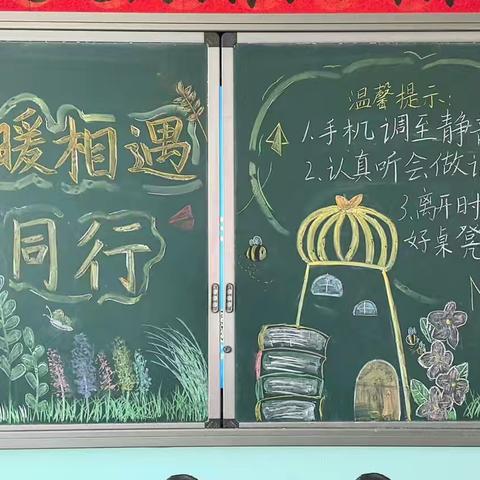 暖相遇
同行
温馨提示:
1.手机调至静音
2.认真听会做
3.离开时
好桌凳